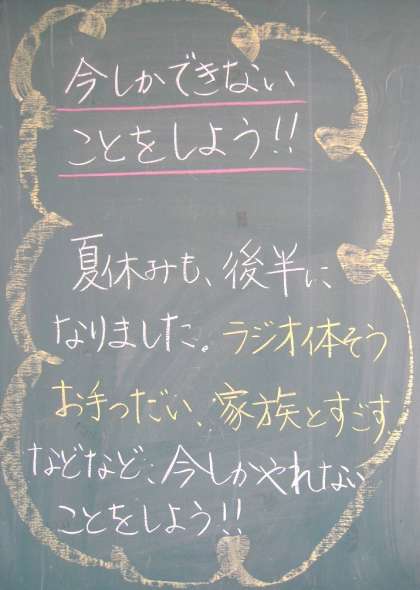 今しかできない
ことをしよう!!
夏休みも、後半に
なりました。ラジオ体そう
お手つだい、家族とすごす
などなど、今しかやれない
ことをしよう!!